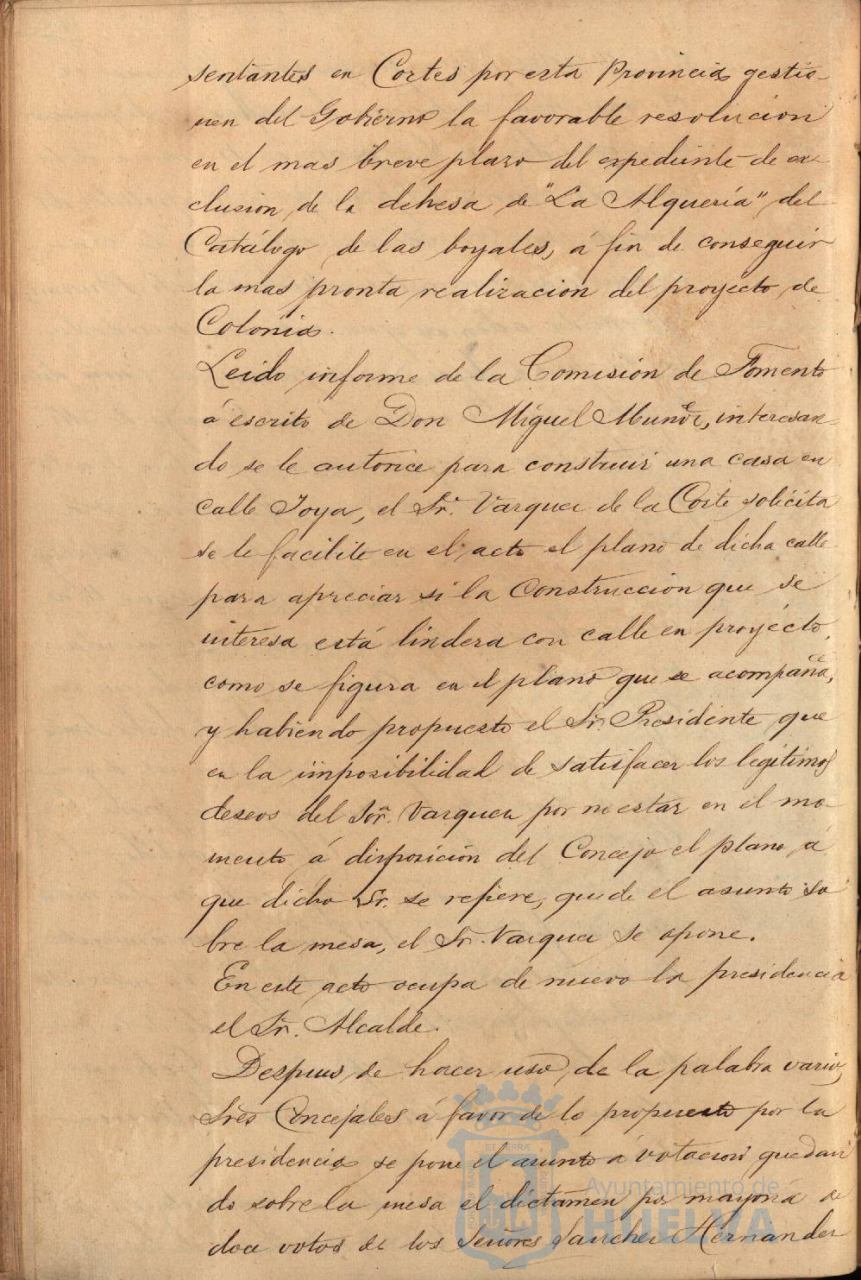 sentantes en Cortes por esta Provincia gestio-
nen del Gobierno la favorable resolucion
en el mas breve plazo del expediente de ex-
clusion de la dehesa de "La Alquería" del
Catálogo de las boyales, á fin de conseguir
la mas pronta realizacion del proyecto de
Colonia.
Leido informe de la Comisión de Fomento
á escrito de Don Miguel Muñoz, interesan-
do se le autorice para construir una casa en
calle Joya, el Sr. Vazquez de la Corte solicita
se le facilite en el acto el plano de dicha calle
para apreciar si la construccion que se
interesa está lindera con calle en proyécto,
como se figura en el plano que se acompaña,
y habiendo propuesto el Sr. Presidente, que
en la imposibilidad de satisfacer los legítimos
deseos del Sor. Vazquez por no estar en el mo-
mento á disposición del Concejo el plano á
que dicho Sr. se refiere, quede el asunto so
bre la mesa, el Sr. Vazquez se opone.
En este acto ocupa de nuevo la presidencia
el Sr. Alcalde.
Despues de hacer uso de la palabra varios
Sres Concejales á favor de lo propuesto por la
presidencia se pone el asunto á votacion quedan
do sobre la mesa el dictámen por mayoría de
doce votos de los Señores Sanchez Hernandez
Ayuntamiento de
HUELVA